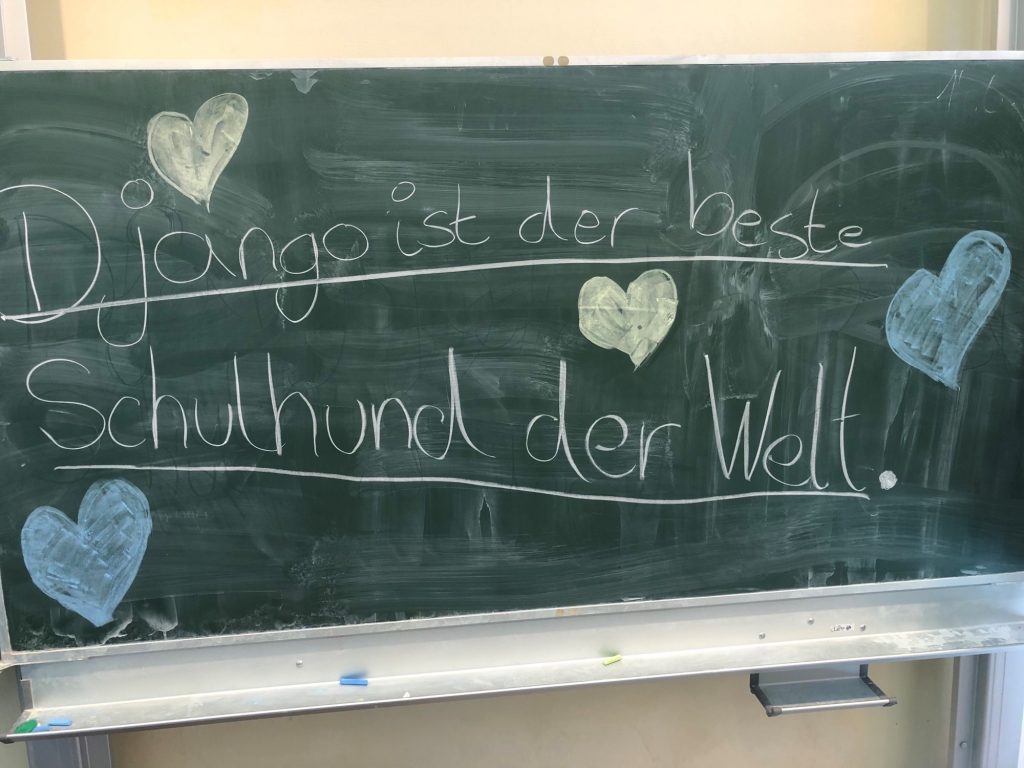 Django ist der beste
Schulhund der Welt.